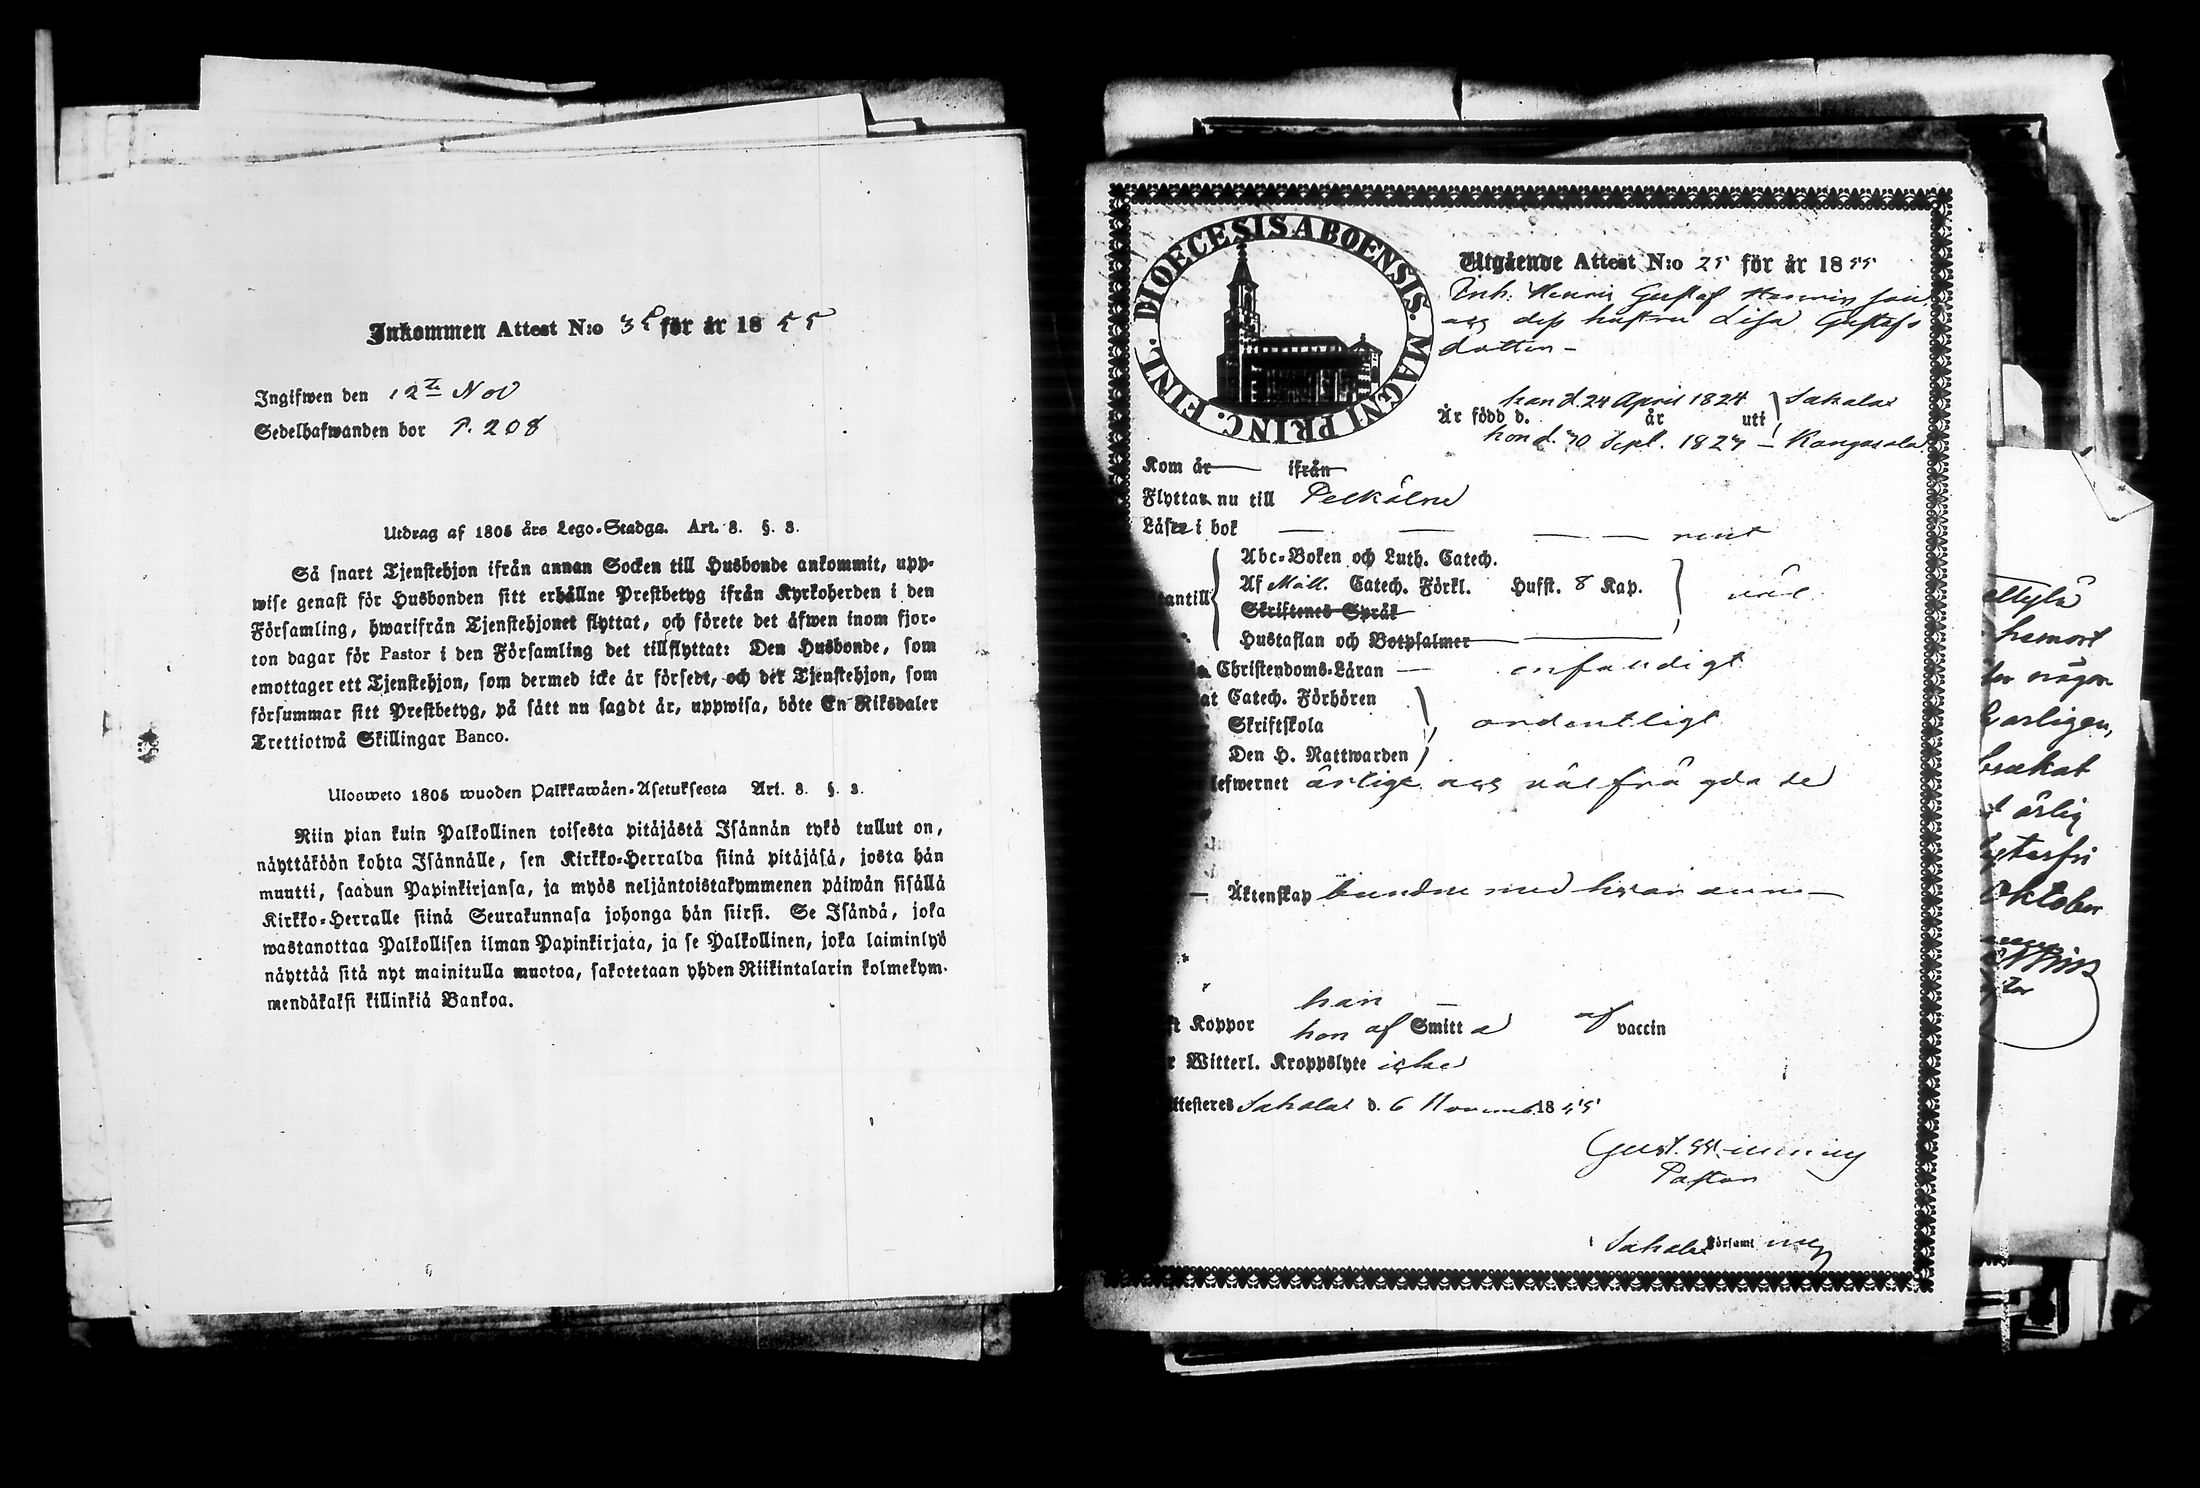 Inkommen Attest N:o 35 för år 1855
Ingifwen den 12te Nov
Sedelhafwanden bor P. 208
Utdrag af 1805 års Lego-Stadga. Art. 8. §. 3.
Så snart Tjenstehjon ifrån annan Socken till Husbonde ankommit, upp-
wise genast för Husbonden sitt erhållne Prestbetyg ifrån Kyrkoherden i den
Församling, hwarifrån Tjenstehjonet flyttat, och förete det äfwen inom fjor-
ton dagar för Pastor i den Församling det tillflyttat: Den Husbonde, som
emottager ett Tjenstehjon, som dermed icke är försedt, och det Tjenstehjon, som
försummar sitt Prestbetyg, på sätt nu sagdt är, uppwisa, böte En Riksdaler
Trettiotwå Skillingar Banco.
Ulosweto 1805 wuoden Palkkawäen-Asetuksesta Art. 8. §. 3.
Niin pian kuin Palkollinen toisesta pitäjästä Isännän tykö tullut on,
näyttäköön kohta Isännälle, sen Kirkko-Herralda siinä pitäjäsä, josta hän
muutti, saadun Papinkirjansa, ja myös neljäntoistakymmenen päiwän sisällä
Kirkko-Herralle siinä Seurakunnasa johonga hän siirsi. Se Isändä, joka
wastanottaa Palkollisen ilman Papinkirjata, ja se Palkollinen, joka laiminlyö
näyttää sitä nyt mainitulla muotoa, sakotetaan yhden Riikintalarin kolmekym-
mendäkaksi killinkiä Bankoa.
DIOECESIS ABOENSIS. MAGNI PRINC. FINL.
Utgående Attest N:o 25 för år 1855
Inh. Henric Gustaf Henricsson
och dess hustru Lisa Gustafs
dotter -
han d. 24 April 1824 Sahalax
Är född d. år uti
hon d. 30 Sept. 1827 - Kangasala
Kom år ifrån
Flyttar nu till Pelkälne
Läser i bok - - - - rent
Abc-Boken och Luth. Catech.
Af Mäll. Catech. Förkl. Husst. 8 Kap.
antill väl
Skriftenes Språk
Hustaflan och Botpsalmer
Christendoms-Läran - enfaldigt
at Catech. Förhören
Skriftskola ordentligt
Den H. Nattwarden
lefwernet ärlige och välfrägdade
- Äktenskap bundne med hvarannan -
han
st Koppor hon af Smitta af vaccin
r Witterl. Kroppslyte icke
ttesteres Sahalax d. 6 Novemb. 1855
Pastor
i Sahalax Församling
hemort
ärlig
Oktober